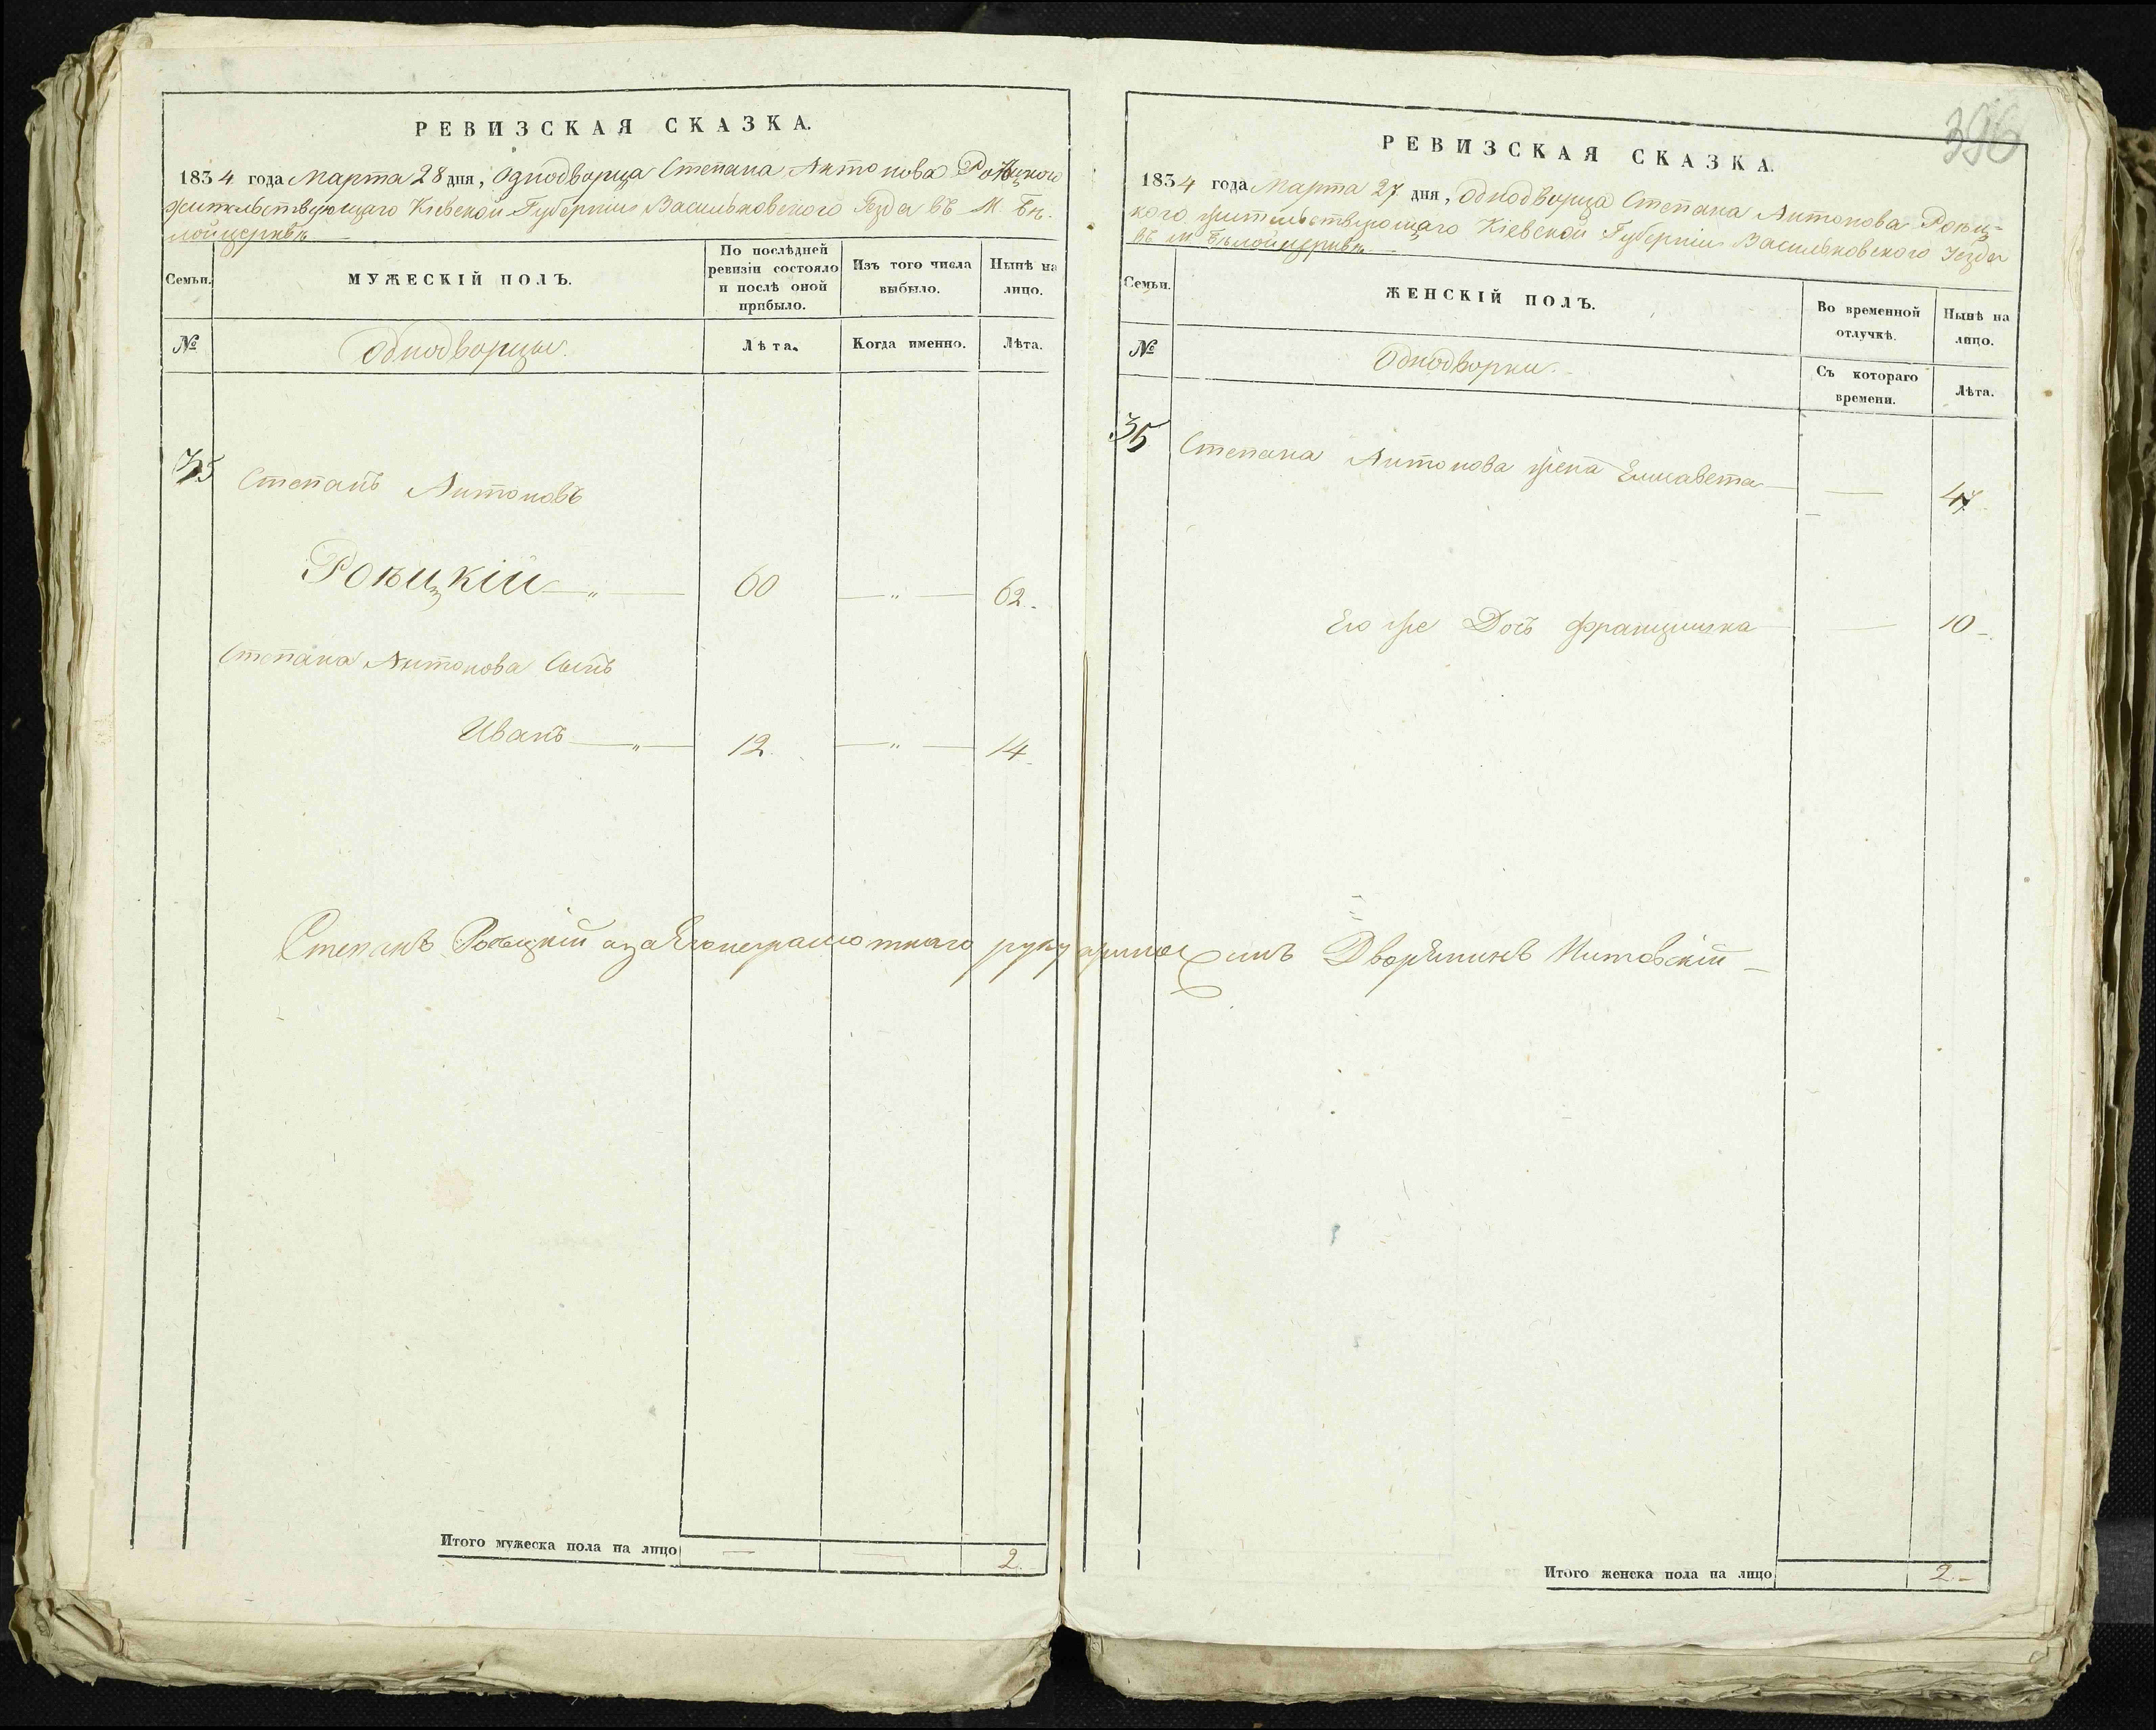 РЕВИЗСКАЯ СКАЗКА.
1834 года Марта 28 дня, Однодворца Степана Антонова
жительствующаго Кіевской Губерніи Васильковского Уезда въ М. Бѣ-
лойцерквѣ
Семьи.
МУЖЕСКІЙ ПОЛЪ.
По послѣдней ревизіи состояло и послѣ оной прибыло.
Изъ того числа выбыло.
Нынѣ на лицо.
№
Однодворцы.
Лѣта.
Когда именно.
Лѣта.
35
Степанъ Антоновъ
60 — „ — 62.
Степана Антонова Сынъ
Иванъ — „ — 12. — „ — 14.
Степанъ а за Его неграмотнаго руку приложилъ Дворянинъ
Итого мужеска пола на лицо — — 2.
396
РЕВИЗСКАЯ СКАЗКА.
1834 года Марта 27 дня, Однодворца Степана Антонова
кого жительствующаго Кіевской Губерніи Васильковского Уезда
въ М Бѣлойцерквѣ.
Семьи.
ЖЕНСКІЙ ПОЛЪ.
Во временной отлучкѣ.
Нынѣ на лицо.
№
Однодворки.
Съ котораго времени.
Лѣта.
35
Степана Антонова жена Елисавета — — 47.
Его же Дочь Францишка — 10 —
Итого женска пола на лицо 2. —